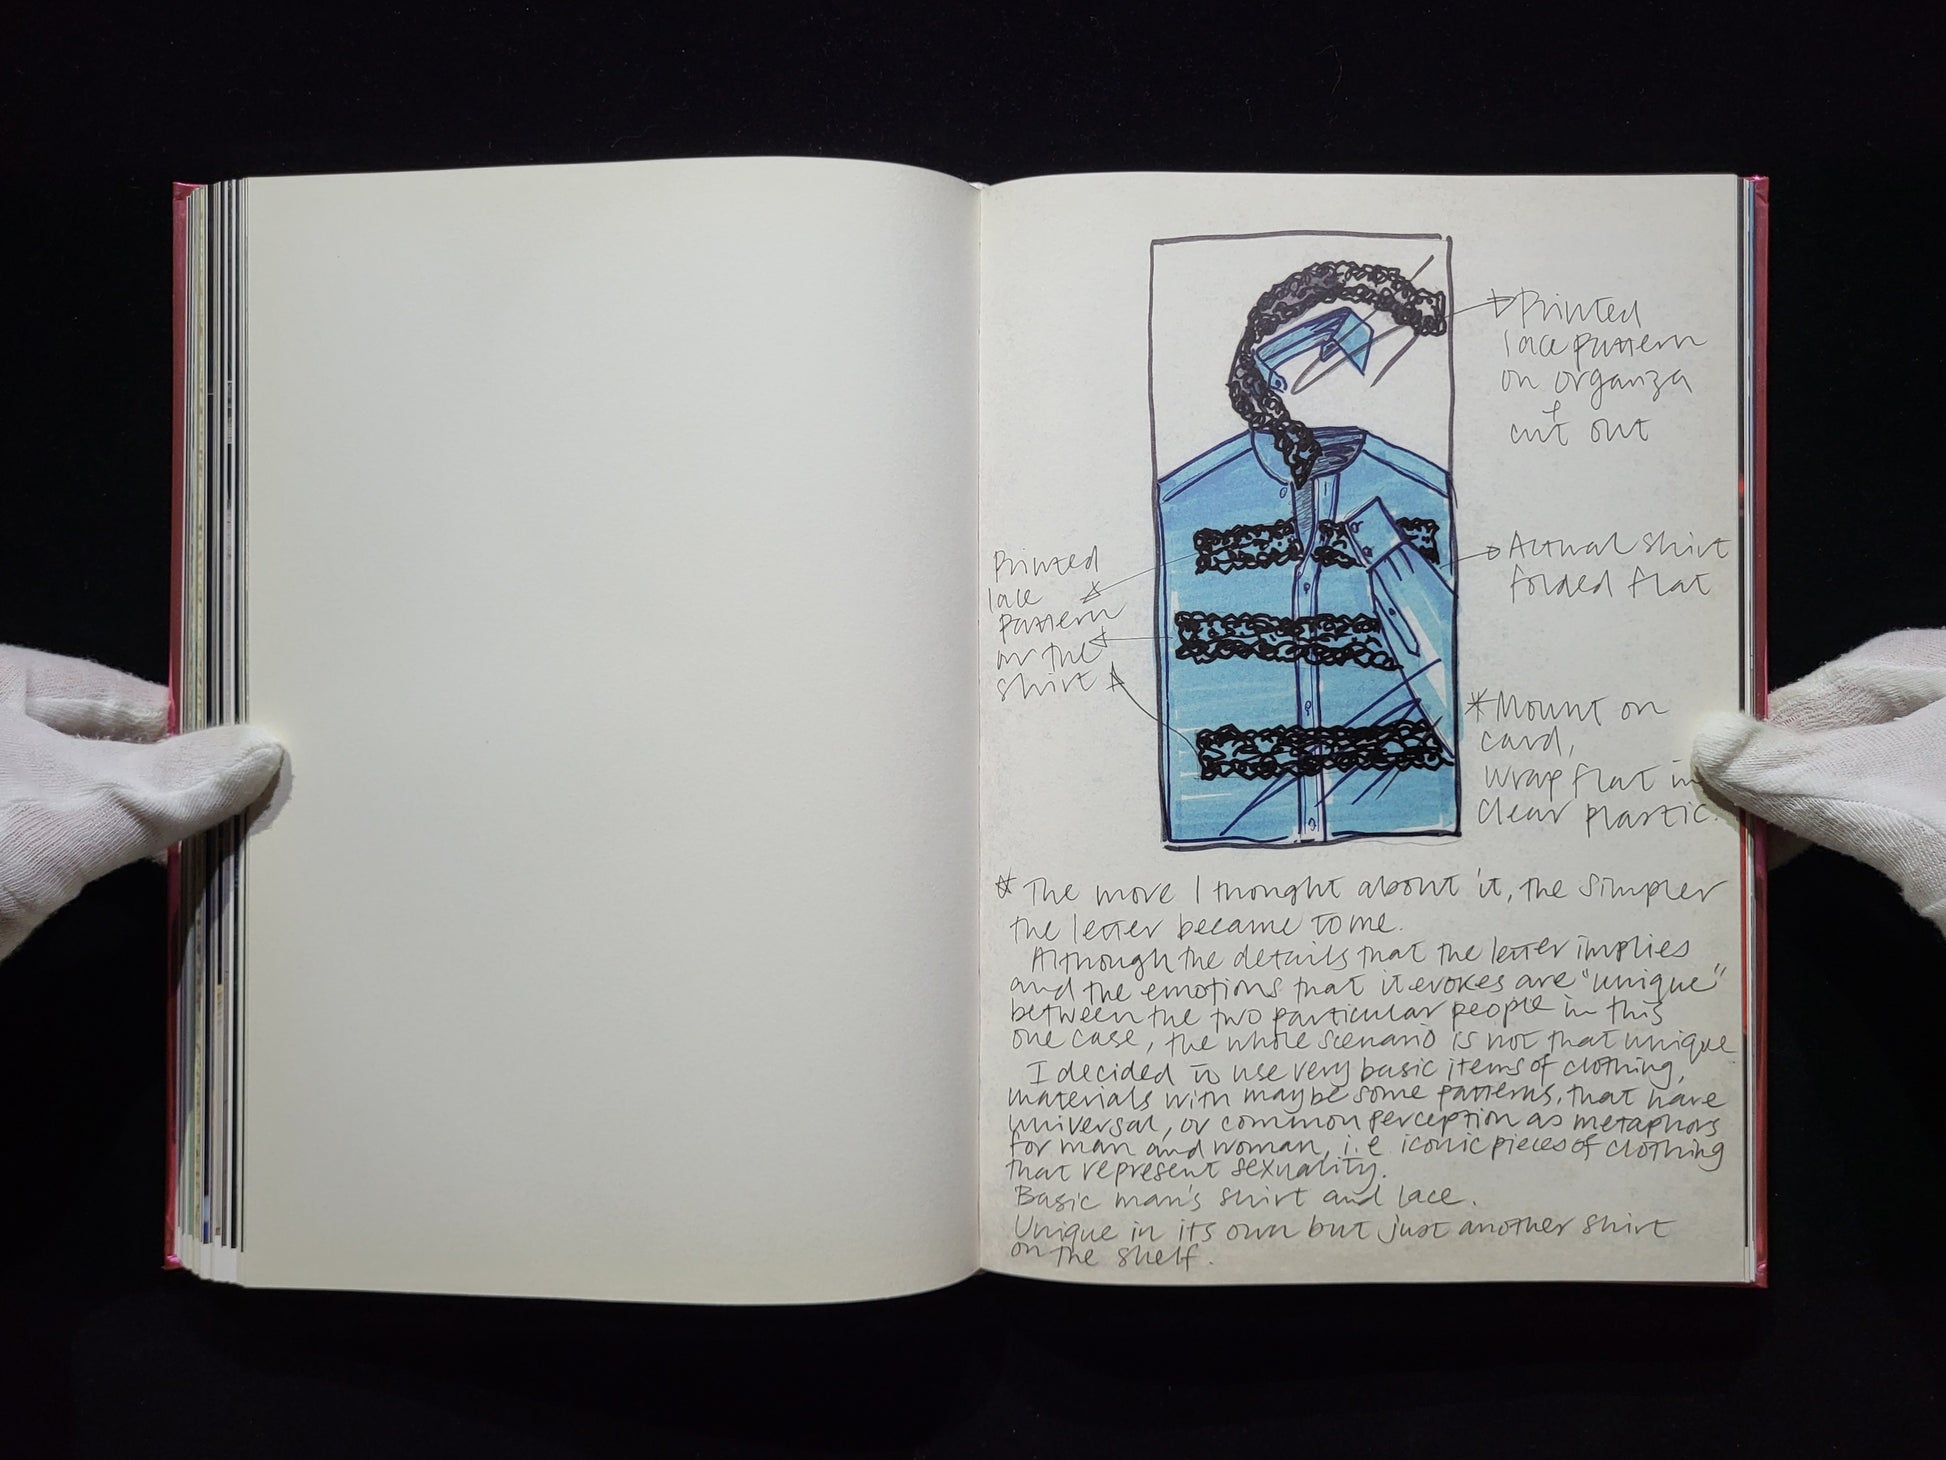 Printed
lace pattern
on organza
&
cut out
Actual shirt
folded flat
Printed
lace
pattern
on the
shirt
*Mount on
card,
wrap flat in
clear plastic.
* The more I thought about it, the simpler
the letter became to me.
Although the details that the letter implies
and the emotions that it evokes are "unique"
between the two particular people in this
one case, the whole scenario is not that unique.
I decided to use very basic items of clothing,
materials with maybe some patterns, that have
universal, or common perception as metaphors
for man and woman, i.e. iconic pieces of clothing
that represent sexuality.
Basic man's shirt and lace.
Unique in its own but just another shirt
on the shelf.